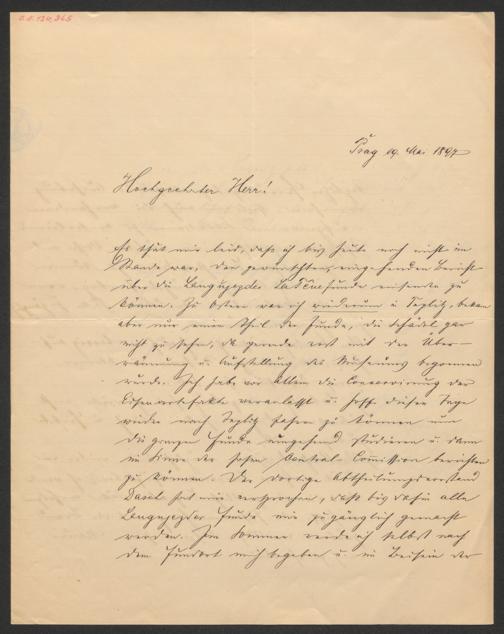 Prag 19. Mai 1897
Hochgeehrter Herr!
Es thut mir leid, dass ich bis heute noch nicht im
Stande war, den gewünschten, eingehenden Bericht
über die Langugezder LaTènefunde einsenden zu
können. Zu Ostern war ich wiederum in Teplitz, bekam
aber nur einen Theil der Funde, die Schädel gar
nicht zu sehen, da gerade erst mit der Über-
räumung u. Aufstellung des Museums begonnen
wurde. Ich habe vor allem die Conservirung der
Eisenartefakte veranlasst u. hoffe dieser Tage
wieder nach Teplitz fahren zu können um
die ganzen Funde eingehend studieren u. dann
im Sinne der hohen Central-Commission berichten
zu können. Der dortige Abtheilungsvorstand
hat mir versprochen, dass bis dahin alle
Langugezder Funde mir zugänglich gemacht
werden. Im Sommer werde ich selbst nach
dem Fundort mich begeben u. im Beisein der